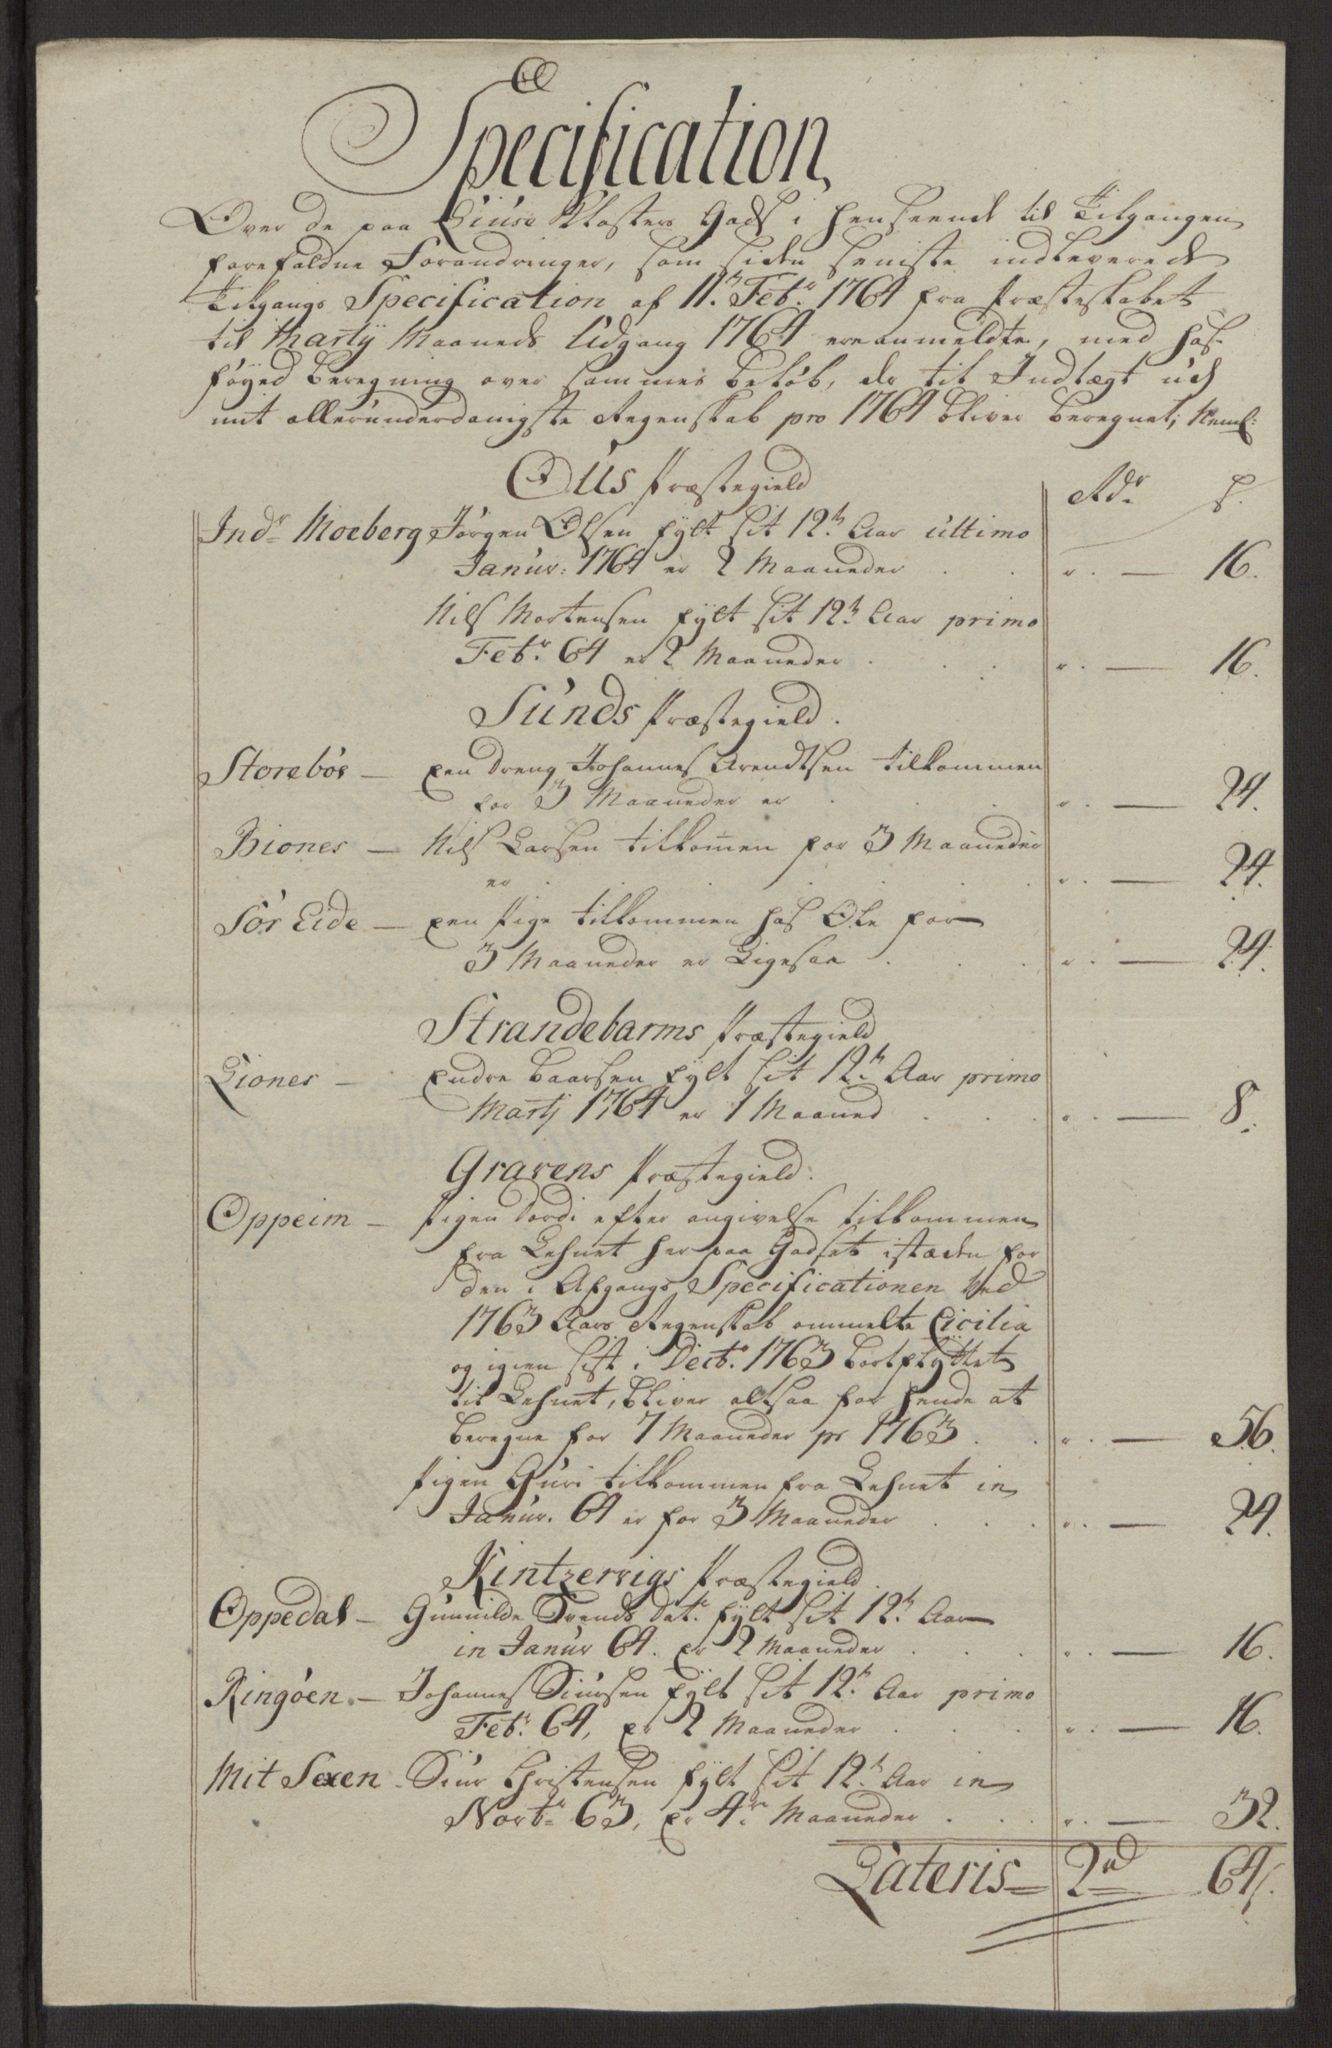 Specification,
Over de paa Liuse Klosters Gods i henseende til Tilgangen
forefaldne Forandringer, som siden seniste indleverede
Tilgangs Specification af 11te Febr. 1764 fra Præsteskabet
til Martij Maaneds Udgang 1764 ere anmeldte, med hos-
føyed Beregning over sammes Beløb, der til Indtægt ud
mit allerunderdanigste Regenskab pro 1764 bliver beregnet, Neml:
Ous Præstegield
Rdr ß.
Indr Moeberg Jørgen Olsen fylt sit 12te Aar ultimo
Janur: 1764 er 2 Maaneder . . " . — 16.
Nils Mortensen fylt sit 12te Aar primo
Febr. 64 er 2 Maaneder . . . " . — 16.
Sunds Præstegield.
Storebøe — een Dreng Johannes Arendtsen tilkommen
for 3 Maaneder er . . . " . — 24.
Biones — Nils Larsen tilkomen for 3 Maaneder
er . . . " . — 24.
Sør Eide — een Pige tilkommen hos Ole for
3 Maaneder er Ligesaa . . . " . — 24.
Strandebarms Præstegield
Liones — Endre Baarsen fylt sit 12te Aar primo
Martj 1764 er 1 Maaned . . . " . — 8.
Gravens Præstegield:
Oppeim — Pigen Tordi efter angivelse tilkommen
fra Lehnet her paa Godset istæden for
den i Afgangs Specificationen ved
1763 Aars Regenskab ommelte Cicilia
og igien sist i Decbr. 1763 bortflyttet
til Lehnet, bliver altsaa for hende at
beregne for 7 Maaneder pr 1763 . . " . — 56.
Pigen Guri tilkommen fra Lehnet in
Janur. 64 er for 3 Maaneder . . . " . — 24.
Kintzervigs Præstegield.
Oppedal — Gunnilde Svends Datr. fylt sit 12te Aar
in Janur 64. er 2 Maaneder . . . " . — 16.
Ringøen. — Johannes Siursen fylt sit 12te Aar primo
Febr. 64, er 2 Maaneder . . . " . — 16.
Mit Sexen - Siur Christensen fylt sit 12te Aar in
Novbr 63, er 4re Maaneder . . . " . — 32.
Lateris = 2rd 64ß.